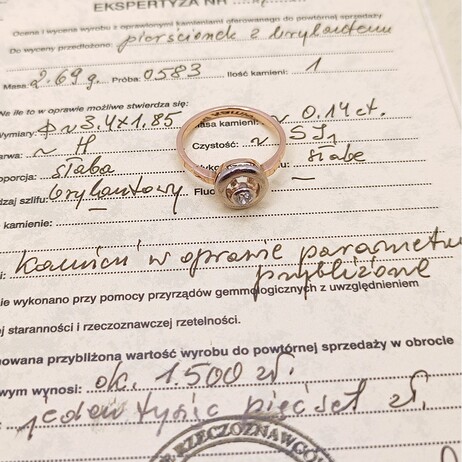 EKSPERTYZA NR
Ocena i wycena wyrobu z oprawionymi kamieniami oferowanego do powtórnej sprzedaży
Do wyceny przedłożono: pierścionek z brylantem
Masa: 2.69 g. Próba: 0583 Ilość kamieni: 1
Na ile to w oprawie możliwe stwierdza się:
ymiary: Φ ~ 3,4x1,85 asa kamieni: ~ 0.14 ct.
arwa: ~ H Czystość: ~ SI1
oporcja: słaba yko u: słabe
dzaj szlifu: brylantowy Fluo —
kamienie: —
i: Kamień w oprawie parametry
przybliżone
ie wykonano przy pomocy przyrządów gemmologicznych z uwzględnieniem
ej staranności i rzeczoznawczej rzetelności.
nowana przybliżona wartość wyrobu do powtórnej sprzedaży w obrocie
wym wynosi: ok. 1.500 zł.
: jeden tysiąc pięćset zł.
RZECZOZNAWCÓ